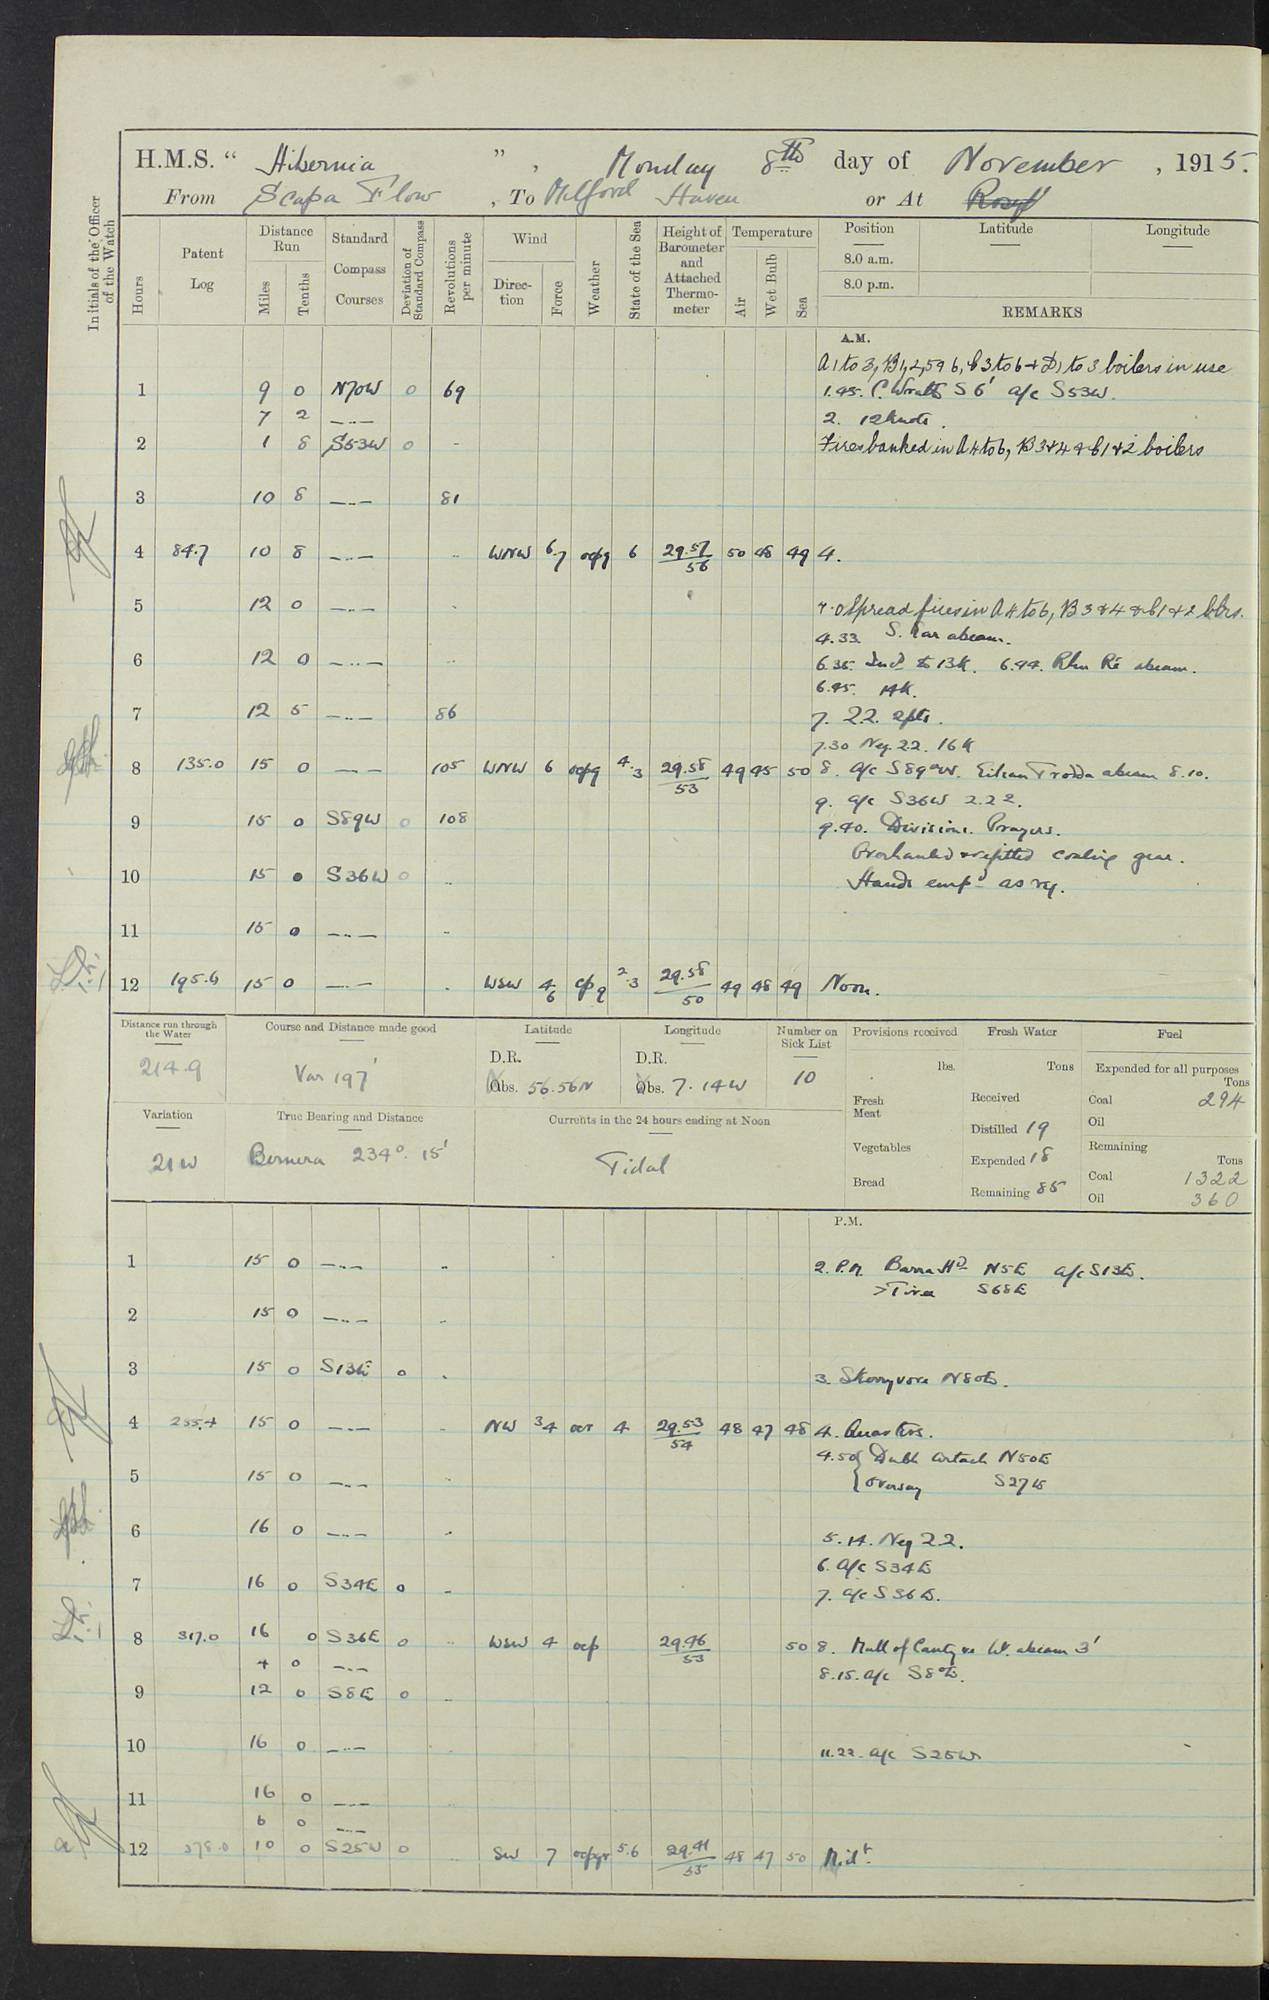 H.M.S. " Hibernia ", Monday 8th day of November, 1915.
From Scapa Flow, To Milford Haven or At
Initials of the Officer of the Watch
Hours
Patent Log
Distance Run
Miles
Tenths
Standard Compass Courses
Deviation of Standard Compass
Revolutions per minute
Wind
Direction
Force
Weather
State of the Sea
Height of Barometer and Attached Thermometer
Temperature
Air
Wet Bulb
Sea
Position Latitude Longitude
8.0 a.m.
8.0 p.m.
REMARKS
A.M.
A 1 to 3, B 1, 2, 5 & 6, C 3 to 6 & D 1 to 3 boilers in use
1 9 0 N70W 0 69 1.45. C. Wrath S 6' a/c S53W.
7 2 —„— 2. 12 knots.
2 1 8 S53W 0 „ Fires banked in A 4 to 6, B 3 & 4 & C 1 & 2 boilers
3 10 8 —„— 81
4 84.7 10 8 —„— „ WNW 6.7 ocpq 6 29.57/56 50 48 49 4.
5 12 0 —„— „ Spread fires in A 4 to 6, B 3 & 4 & C 1 & 2 blrs.
4.33 abeam.
6 12 0 —„— „ 6.35. Incd to 13K. 6.44. Rhu Ré abeam.
6.45. 14K.
7 12 5 —„— 86 7. ZZ. 2pts.
7.30 Neg. ZZ. 16K
8 135.0 15 0 —„— 105 WNW 6 ocpq 4.3 29.58/53 49 45 50 8. a/c S89°W. Eilean Trodda abeam 8.10.
9. a/c S36W ZZ 2.
9 15 0 S89W 0 108 9.40. Divisions. Prayers.
Overhauled & refitted coaling gear.
10 15 0 S36W 0 „ Hands empd as req.
11 15 0 —„— „
12 195.6 15 0 —„— „ WSW 4/6 cpq 2.3 29.58/50 49 48 49 Noon.
Distance run through the Water
214.9
Course and Distance made good
Var 197'
Latitude
D.R.
Obs. 56.56N
Longitude
D.R.
Obs. 7.14W
Number on Sick List
10
Provisions received
lbs.
Fresh Meat
Vegetables
Bread
Fresh Water
Tons
Received
Distilled 19
Expended 18
Remaining 85
Fuel
Expended for all purposes
Tons
Coal 294
Oil
Remaining
Tons
Coal 1322
Oil 360
Variation
21W
True Bearing and Distance
Bernera 234°. 15'
Currents in the 24 hours ending at Noon
Tidal
P.M.
1 15 0 —„— „ 2. P.M. Barra Hd N5E a/c S13E.
Tiree S68E
2 15 0 —„— „
3 15 0 S13E 0 „ 3. Skerryvore N80E.
4 255.4 15 0 —„— „ NW 3 4 ocr 4 29.53/54 48 47 48 4. Quarters.
4.50 { Dubh Artach N50E
5 15 0 —„— „ { Oversay S27E
6 16 0 —„— „ 5.14. Neg ZZ.
6. a/c S34E
7 16 0 S34E 0 „ 7. a/c S36E.
8 317.0 16 0 S36E 0 „ WSW 4 ocp 29.46/53 50 8. Mull of abeam 3'
4 0 —„— 8.15. a/c S8°E.
9 12 0 S8E 0 „
10 16 0 —„— 11.22. a/c S25W
11 16 0 —„—
6 0 —„—
12 378.0 10 0 S25W 0 „ SW 7 5.6 29.41/55 48 47 50 Midt.